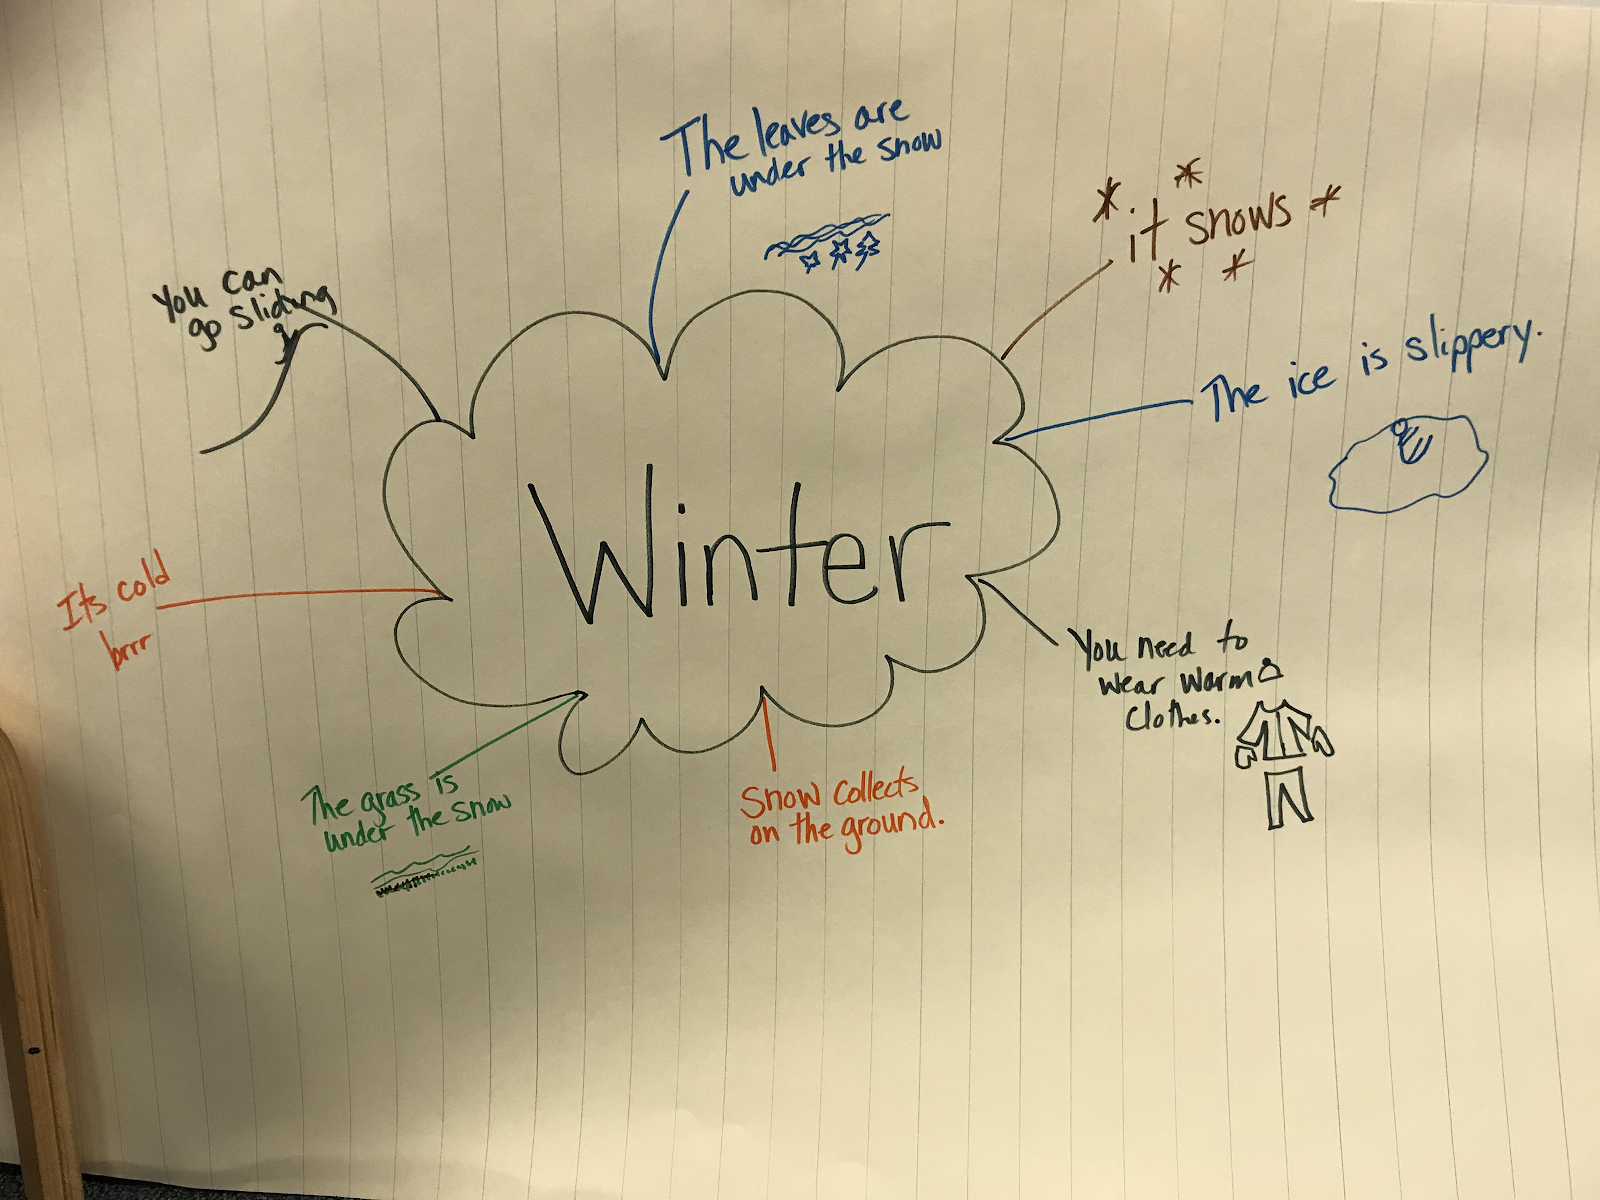 The leaves are
under the snow
it snows
You can
go sliding
The ice is slippery.
Winter
Its cold
brrr
You need to
wear warm
clothes.
The grass is
under the snow
Snow collects
on the ground.